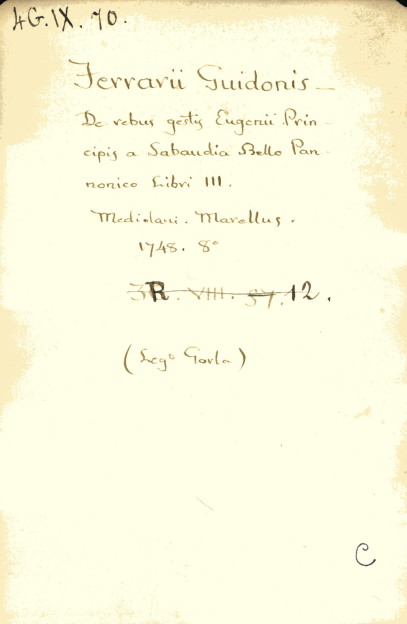 4G.IX.70.
Ferrarii Guidonis_
De rebus gestis Eugenii Prin-
cipis a Sabaudia Bello Pan-
nonico Libri III.
Mediolani. Marellus.
1748. 8°
R. VIII. 57. 12.
(Leg° Gorla)
C